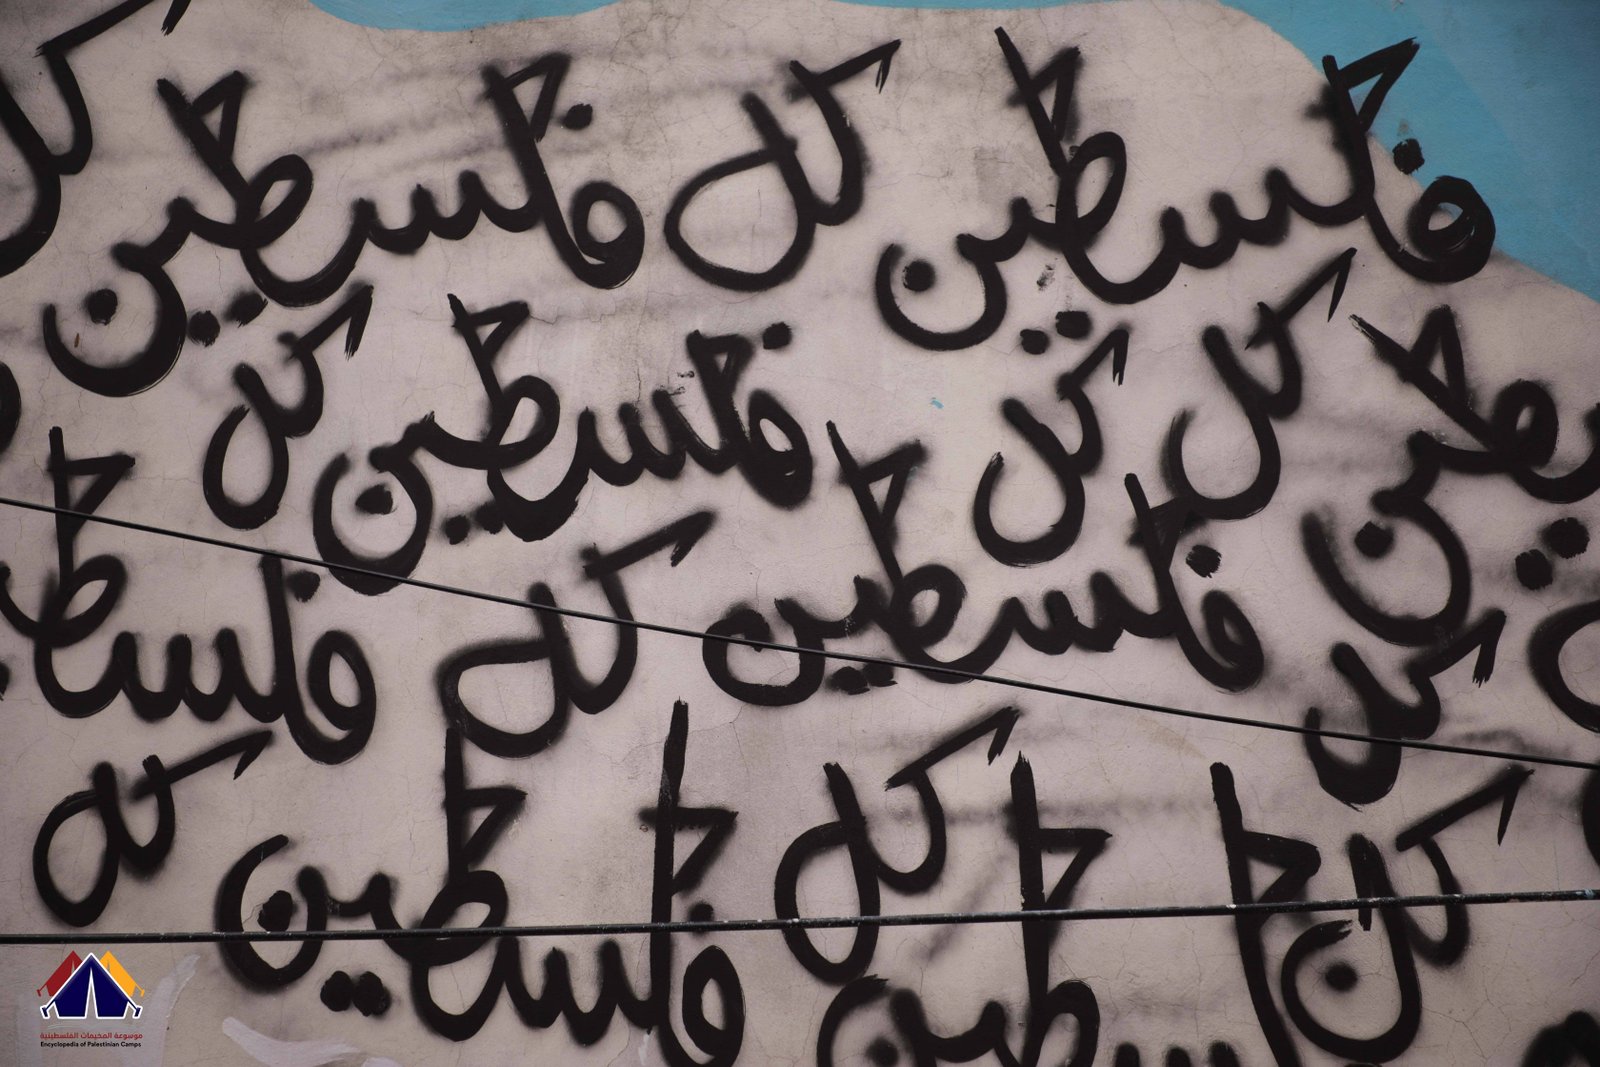 فلسطين كل فلسطين كل
فلسطين كل كل فلسطين كل
كل فلسطين كل فلسطين
كل كل فلسطين كل
فلسطين
موسوعة المخيمات الفلسطينية
Encyclopedia of Palestinian Camps